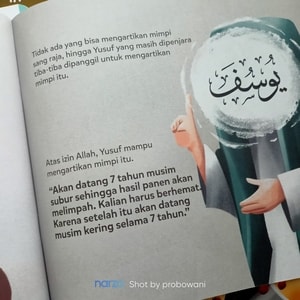 Tidak ada yang bisa mengartikan mimpi
sang raja, hingga Yusuf yang masih dipenjara
tiba-tiba dipanggil untuk mengartikan
mimpi itu.
يوسف
Atas izin Allah, Yusuf mampu
mengartikan mimpi itu.
"Akan datang 7 tahun musim
subur sehingga hasil panen akan
melimpah. Kalian harus berhemat.
Karena setelah itu akan datang
musim kering selama 7 tahun."
narzo Shot by probowani